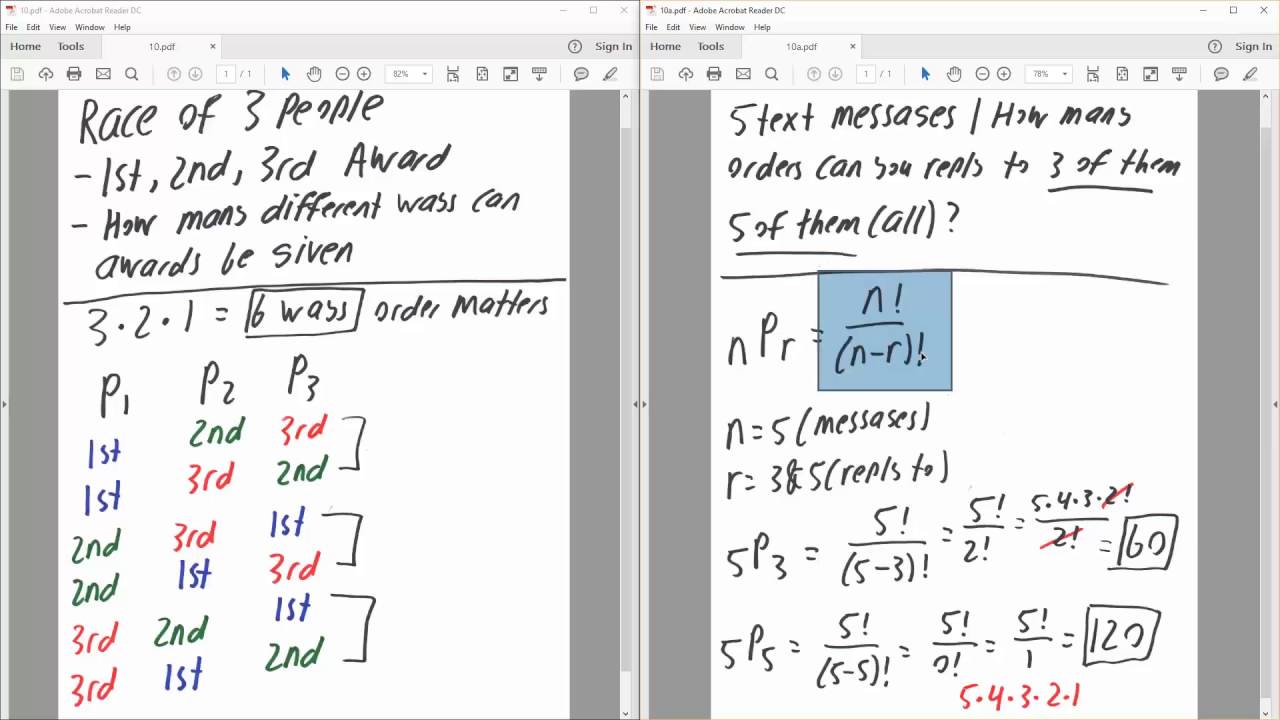 10.pdf - Adobe Acrobat Reader DC
File Edit View Window Help
Home Tools 10.pdf × Sign In
1 / 1 82%
Race of 3 People
- 1st, 2nd, 3rd Award
- How many different ways can
awards be given
3·2·1 = 6 ways order Matters
P1 P2 P3
1st 2nd 3rd
1st 3rd 2nd
2nd 3rd 1st
2nd 1st 3rd
3rd 2nd 1st
3rd 1st 2nd
10a.pdf - Adobe Acrobat Reader DC
File Edit View Window Help
Home Tools 10a.pdf × Sign In
1 / 1 78%
5 text messages / How many
orders can you reply to 3 of them
5 of them (all)?
nPr = n! / (n-r)!
n = 5 (messages)
r = 3 & 5 (reply to)
5P3 = 5! / (5-3)! = 5! / 2! = 5·4·3·2! / 2! = 60
5P5 = 5! / (5-5)! = 5! / 0! = 5! / 1 = 120
5·4·3·2·1